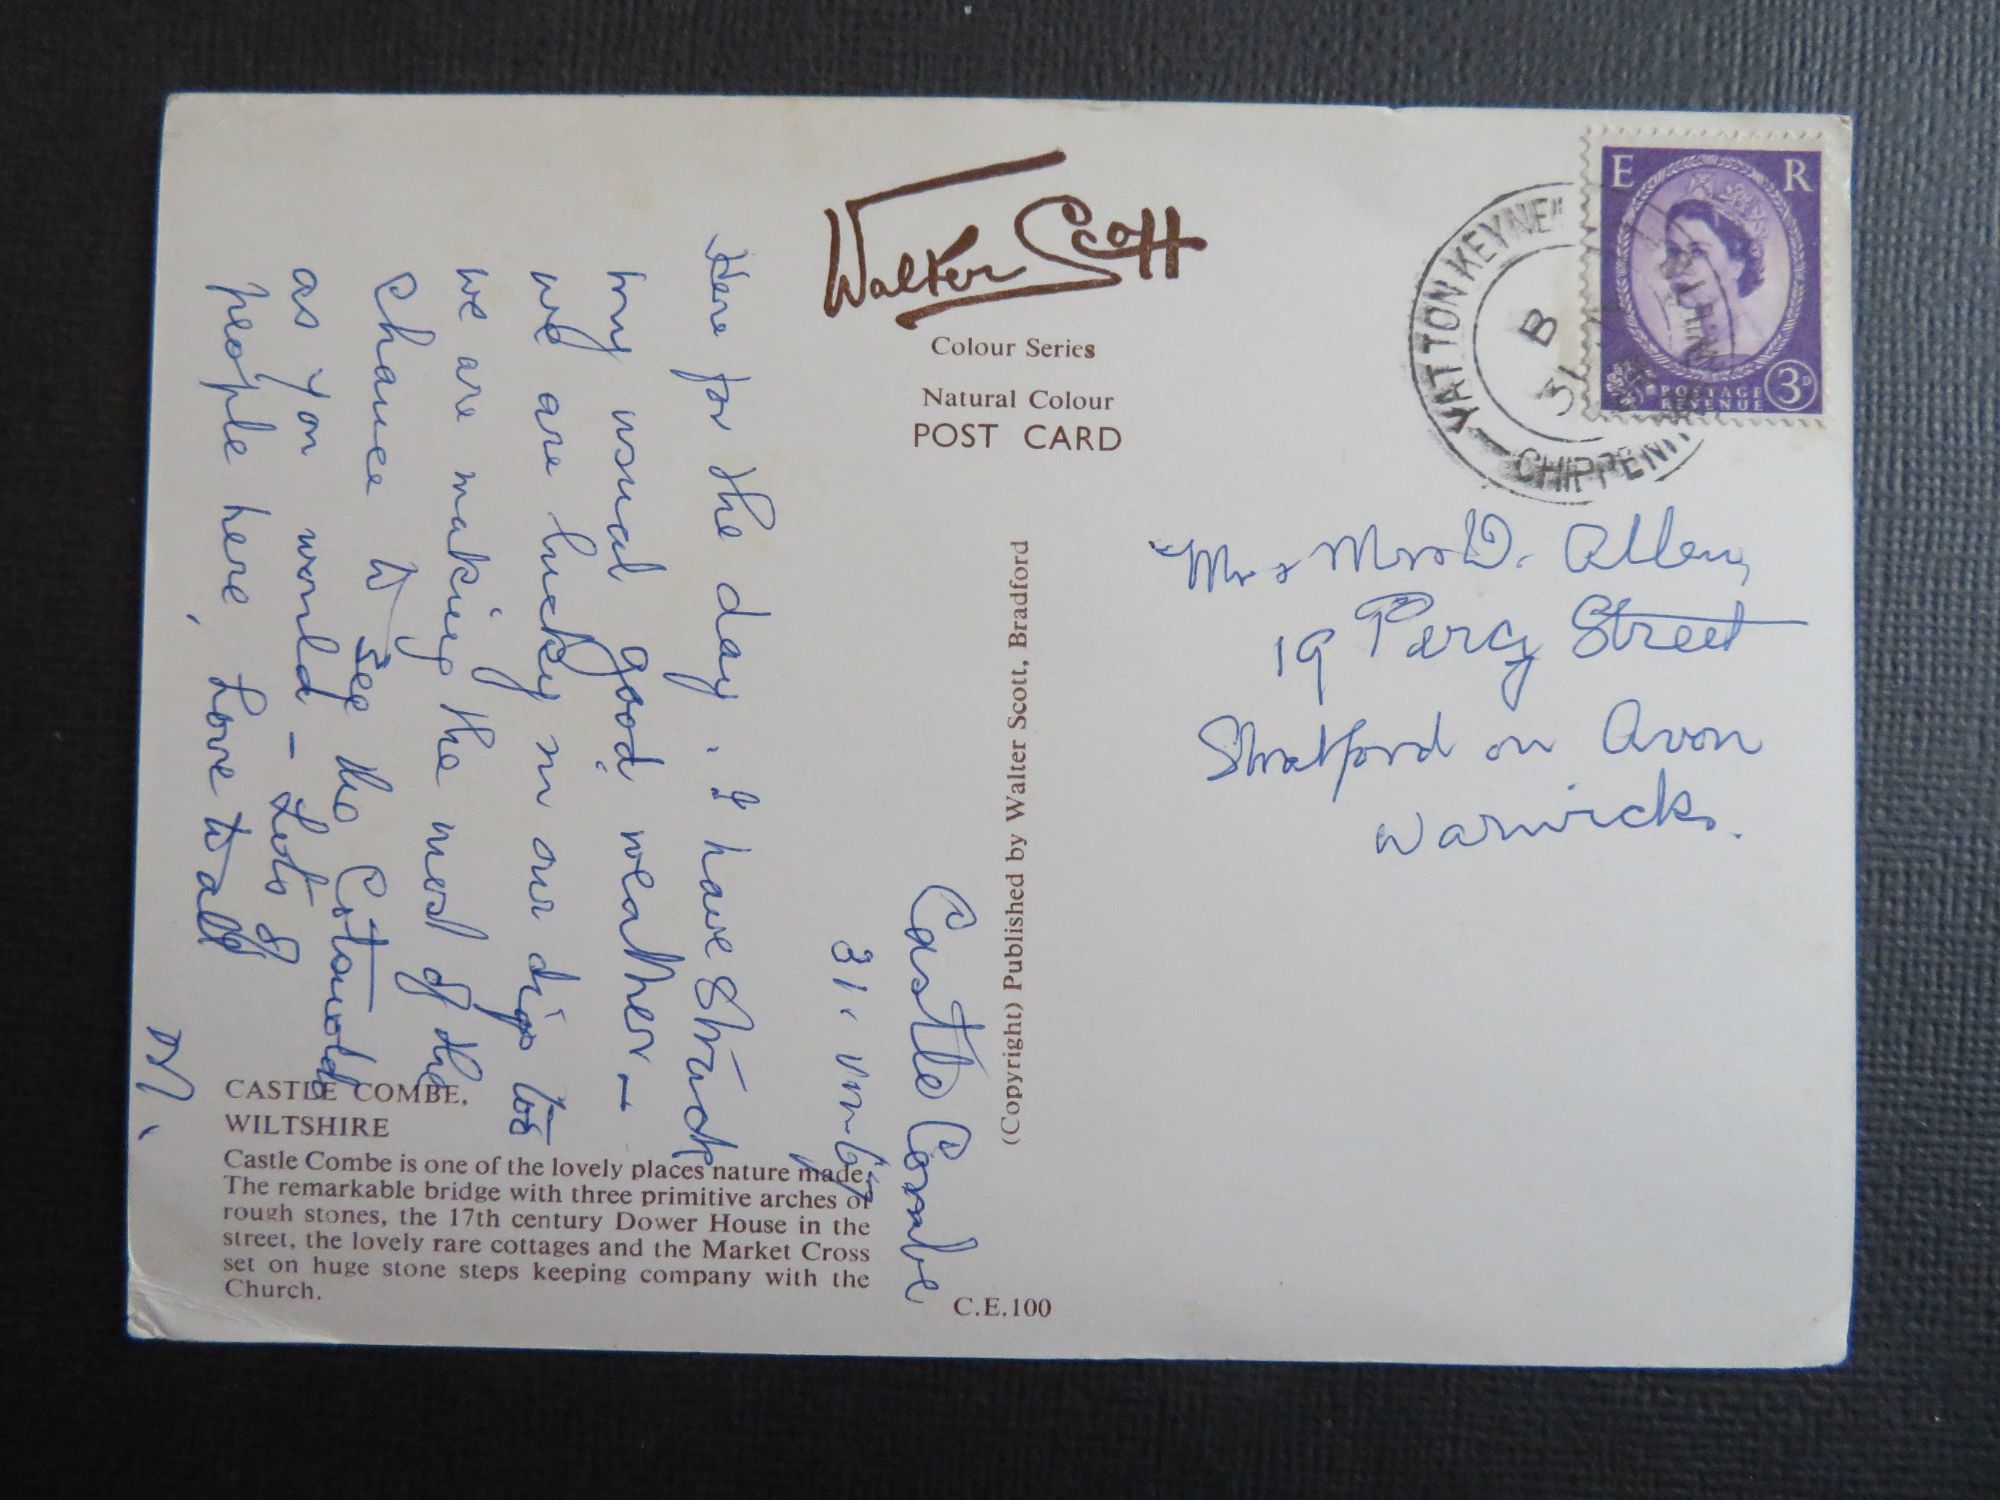 Walter Scott
Colour Series
Natural Colour
POST CARD
E R
POSTAGE
REVENUE
3D
YATTON KEYNELL
B
31
CHIPPENH
Mr & Mrs D. Allen,
19 Percy Street
Stratford on Avon
Warwicks.
(Copyright) Published by Walter Scott, Bradford
Castle Combe
31.
Here for the day. I have struck
my usual good weather –
we are lucky in our digs too
we are making the most of the
chance to see the Cotswolds
as you would – Lots of
people here, Love to all
M.
CASTLE COMBE,
WILTSHIRE
Castle Combe is one of the lovely places nature made.
The remarkable bridge with three primitive arches of
rough stones, the 17th century Dower House in the
street, the lovely rare cottages and the Market Cross
set on huge stone steps keeping company with the
Church.
C.E.100